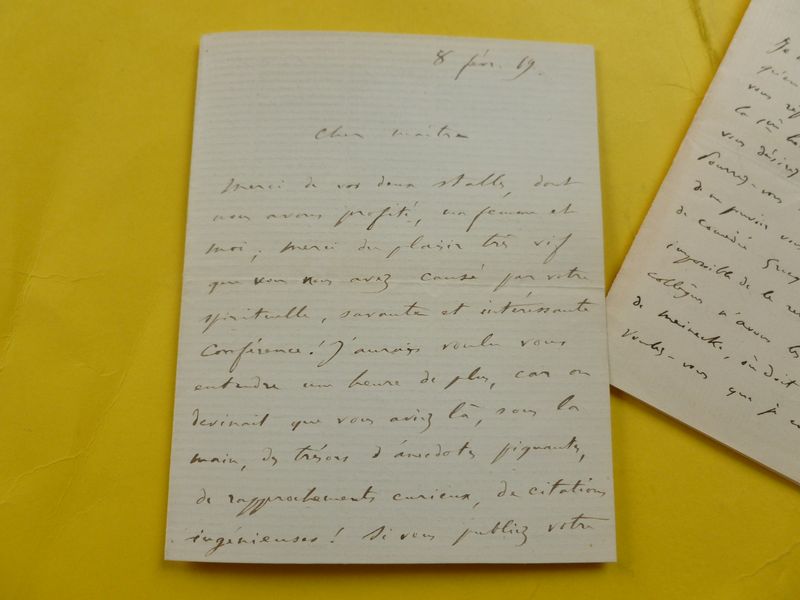 8 févr. 69.
Cher maître
Merci de vos deux stalles, dont
nous avons profité, ma femme et
moi; merci du plaisir très vif
que vous nous avez causé par votre
spirituelle, savante et intéressante
Conférence! J'aurais voulu vous
entendre une heure de plus, car on
devinait que vous aviez là, sous la
main, des trésors d'anecdotes piquantes,
de rapprochements curieux, de citations
ingénieuses! Si vous publiez votre
Je
vous
la
vous désirez
Pourriez-vous
de pouvoir
de comédie Grecque
impossible de la
collègues n'avons
de meinecke, où doit
Voulez-vous que je